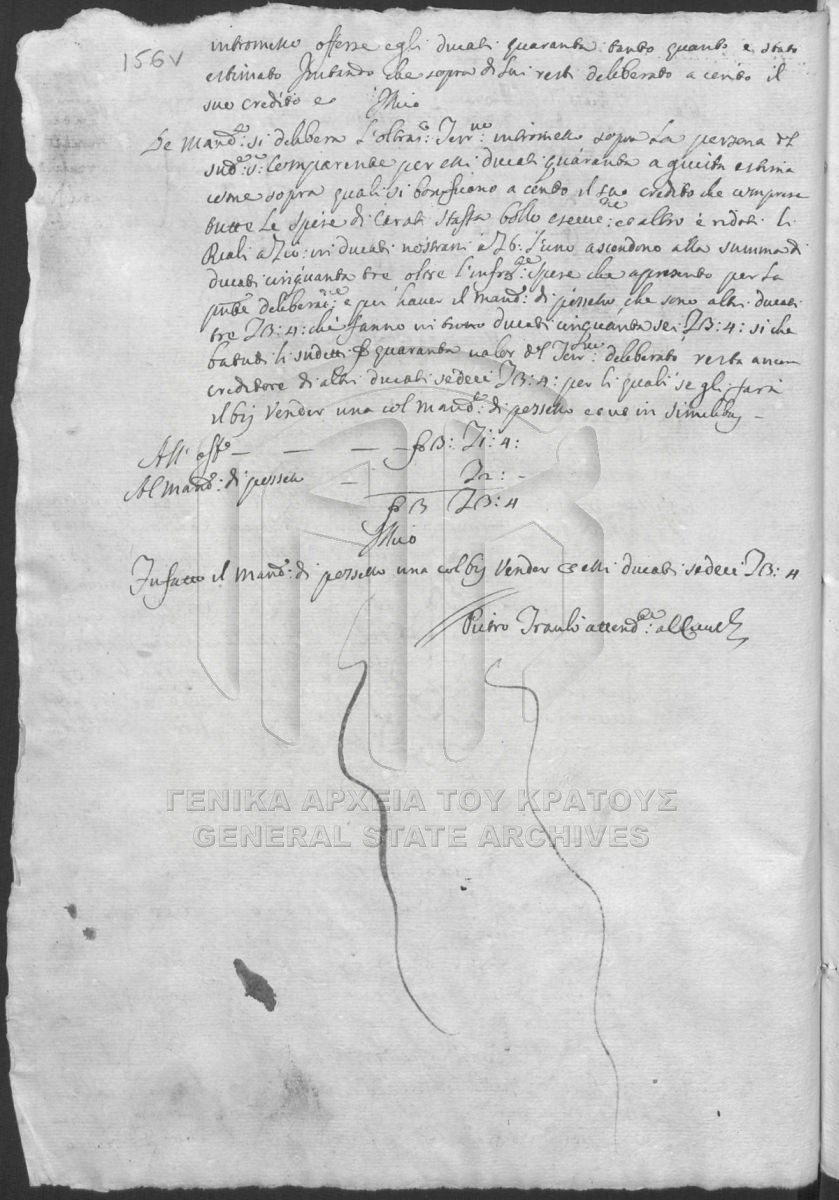 156v
intromesso offerse egli ducati quaranta tanto quanto è stato
estimato Instando che sopra di lui resti deliberato a conto il
suo credito et
De Mand:to si delibera l'oltras:to Terr:no intromesso sopra la persona del
sud:to s:r Comparente per essi ducati quaranta a giusta estima
come sopra quali si bonificano a conto il suo credito che comprese
tutte le spese di Carati stassa bollo esecut:ne et altro è ridoti li
Reali a in ducati nostrani à l'uno ascendono alla summa di
ducati cinquanta tre oltre l'infras:te spese che apresendo per la
pnte deliberat:ne e per haver il mand:to di possesso che sono altri ducati
tre : 4: che fanno in tutto ducati cinquanta sei : 4: si che
batuti li sudetti quaranta valor del Terr:no deliberato resta ancora
creditore di altri ducati sedeci : 4: per li quali se gli farà
il bij Vender una col mand:to di possesso et ut in similibus
All' off:o — — — : 4:
Al Mand:to di possesso —
: 4
Fu fatto il Mand:to di possesso una col bij Vender et essi ducati sedeci : 4
Pietro attend:te al
ΓΕΝΙΚΑ ΑΡΧΕΙΑ ΤΟΥ ΚΡΑΤΟΥΣ
GENERAL STATE ARCHIVES